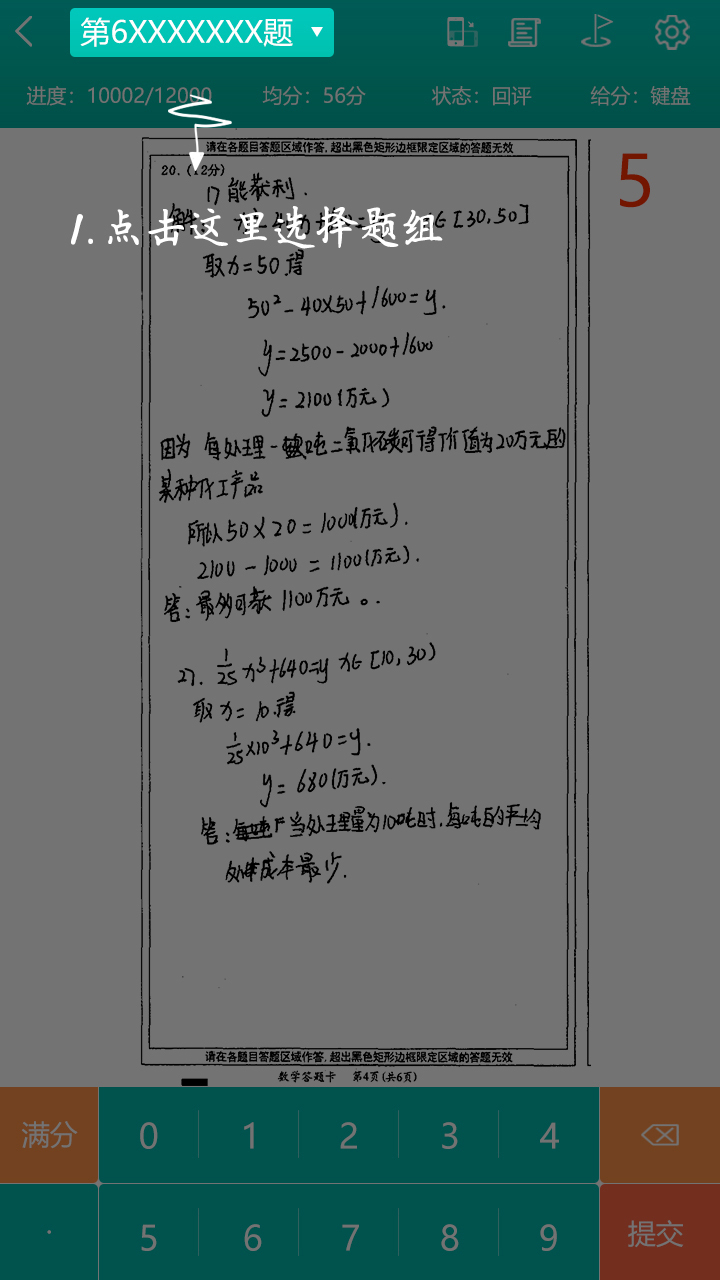 第6XXXXXXX题
进度：10002/12000 均分：56分 状态：回评 给分：键盘
请在各题目答题区域作答，超出黑色矩形边框限定区域的答题无效
5
20.（12分）
1) 能获利.
1.点击这里选择题组
∈[30,50]
取x=50.得
50²-40×50+1600=y.
y=2500-2000+1600
y=2100(万元)
因为 每处理一吨二氧化碳可得价值为20万元的
某种化工产品
所以50×20=1000(万元).
2100-1000=1100(万元).
答：最多可获1100万元。.
27. 1/25x³+640=y x∈[10,30)
取x=10.得
1/25×10³+640=y.
y=680(万元).
答：当处理量为10吨时.每吨的平均
成本最少.
请在各题目答题区域作答，超出黑色矩形边框限定区域的答题无效
数学答题卡 第4页(共6页)
满分 0 1 2 3 4
. 5 6 7 8 9 提交